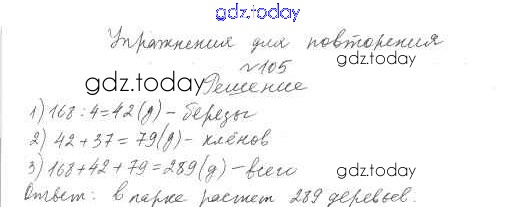 gdz.today
Упражнения для повторения
gdz.today
№105
gdz.today
Решение
1) 168 : 4 = 42 (д) - берёзы
2) 42 + 37 = 79 (д) - клёнов
3) 168 + 42 + 79 = 289 (д) - всего
gdz.today
gdz.today
Ответ: в парке растет 289 деревьев.